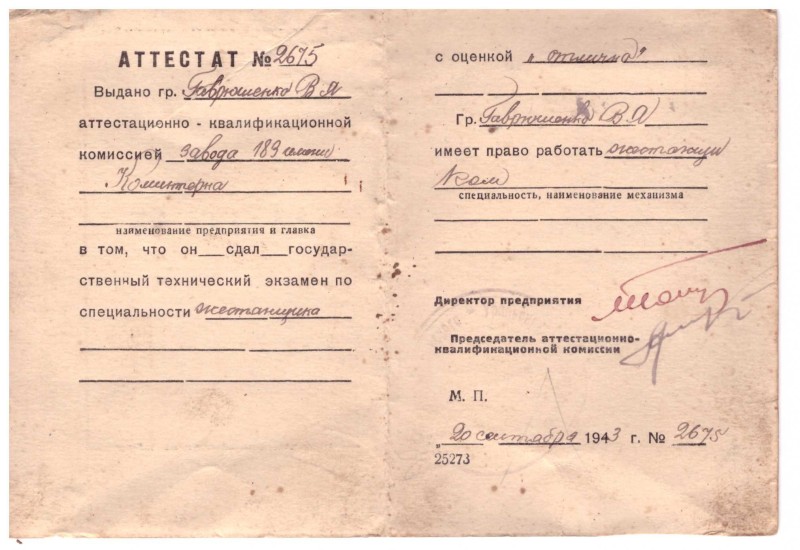 АТТЕСТАТ № 2675
Выдано гр. Гаврюшенко В Я
аттестационно - квалификационной
комиссией завода 183 имени
Коминтерна
наименование предприятия и главка
в том, что он сдал государ-
ственный технический экзамен по
специальности жестянщика
с оценкой „ отлично"
Гр. Гаврюшенко В Я
имеет право работать жестянщи
ком
специальность, наименование механизма
Директор предприятия
Председатель аттестационно-
квалификационной комиссии
М. П.
„ 20 сентября 1943 г. № 2675
25273